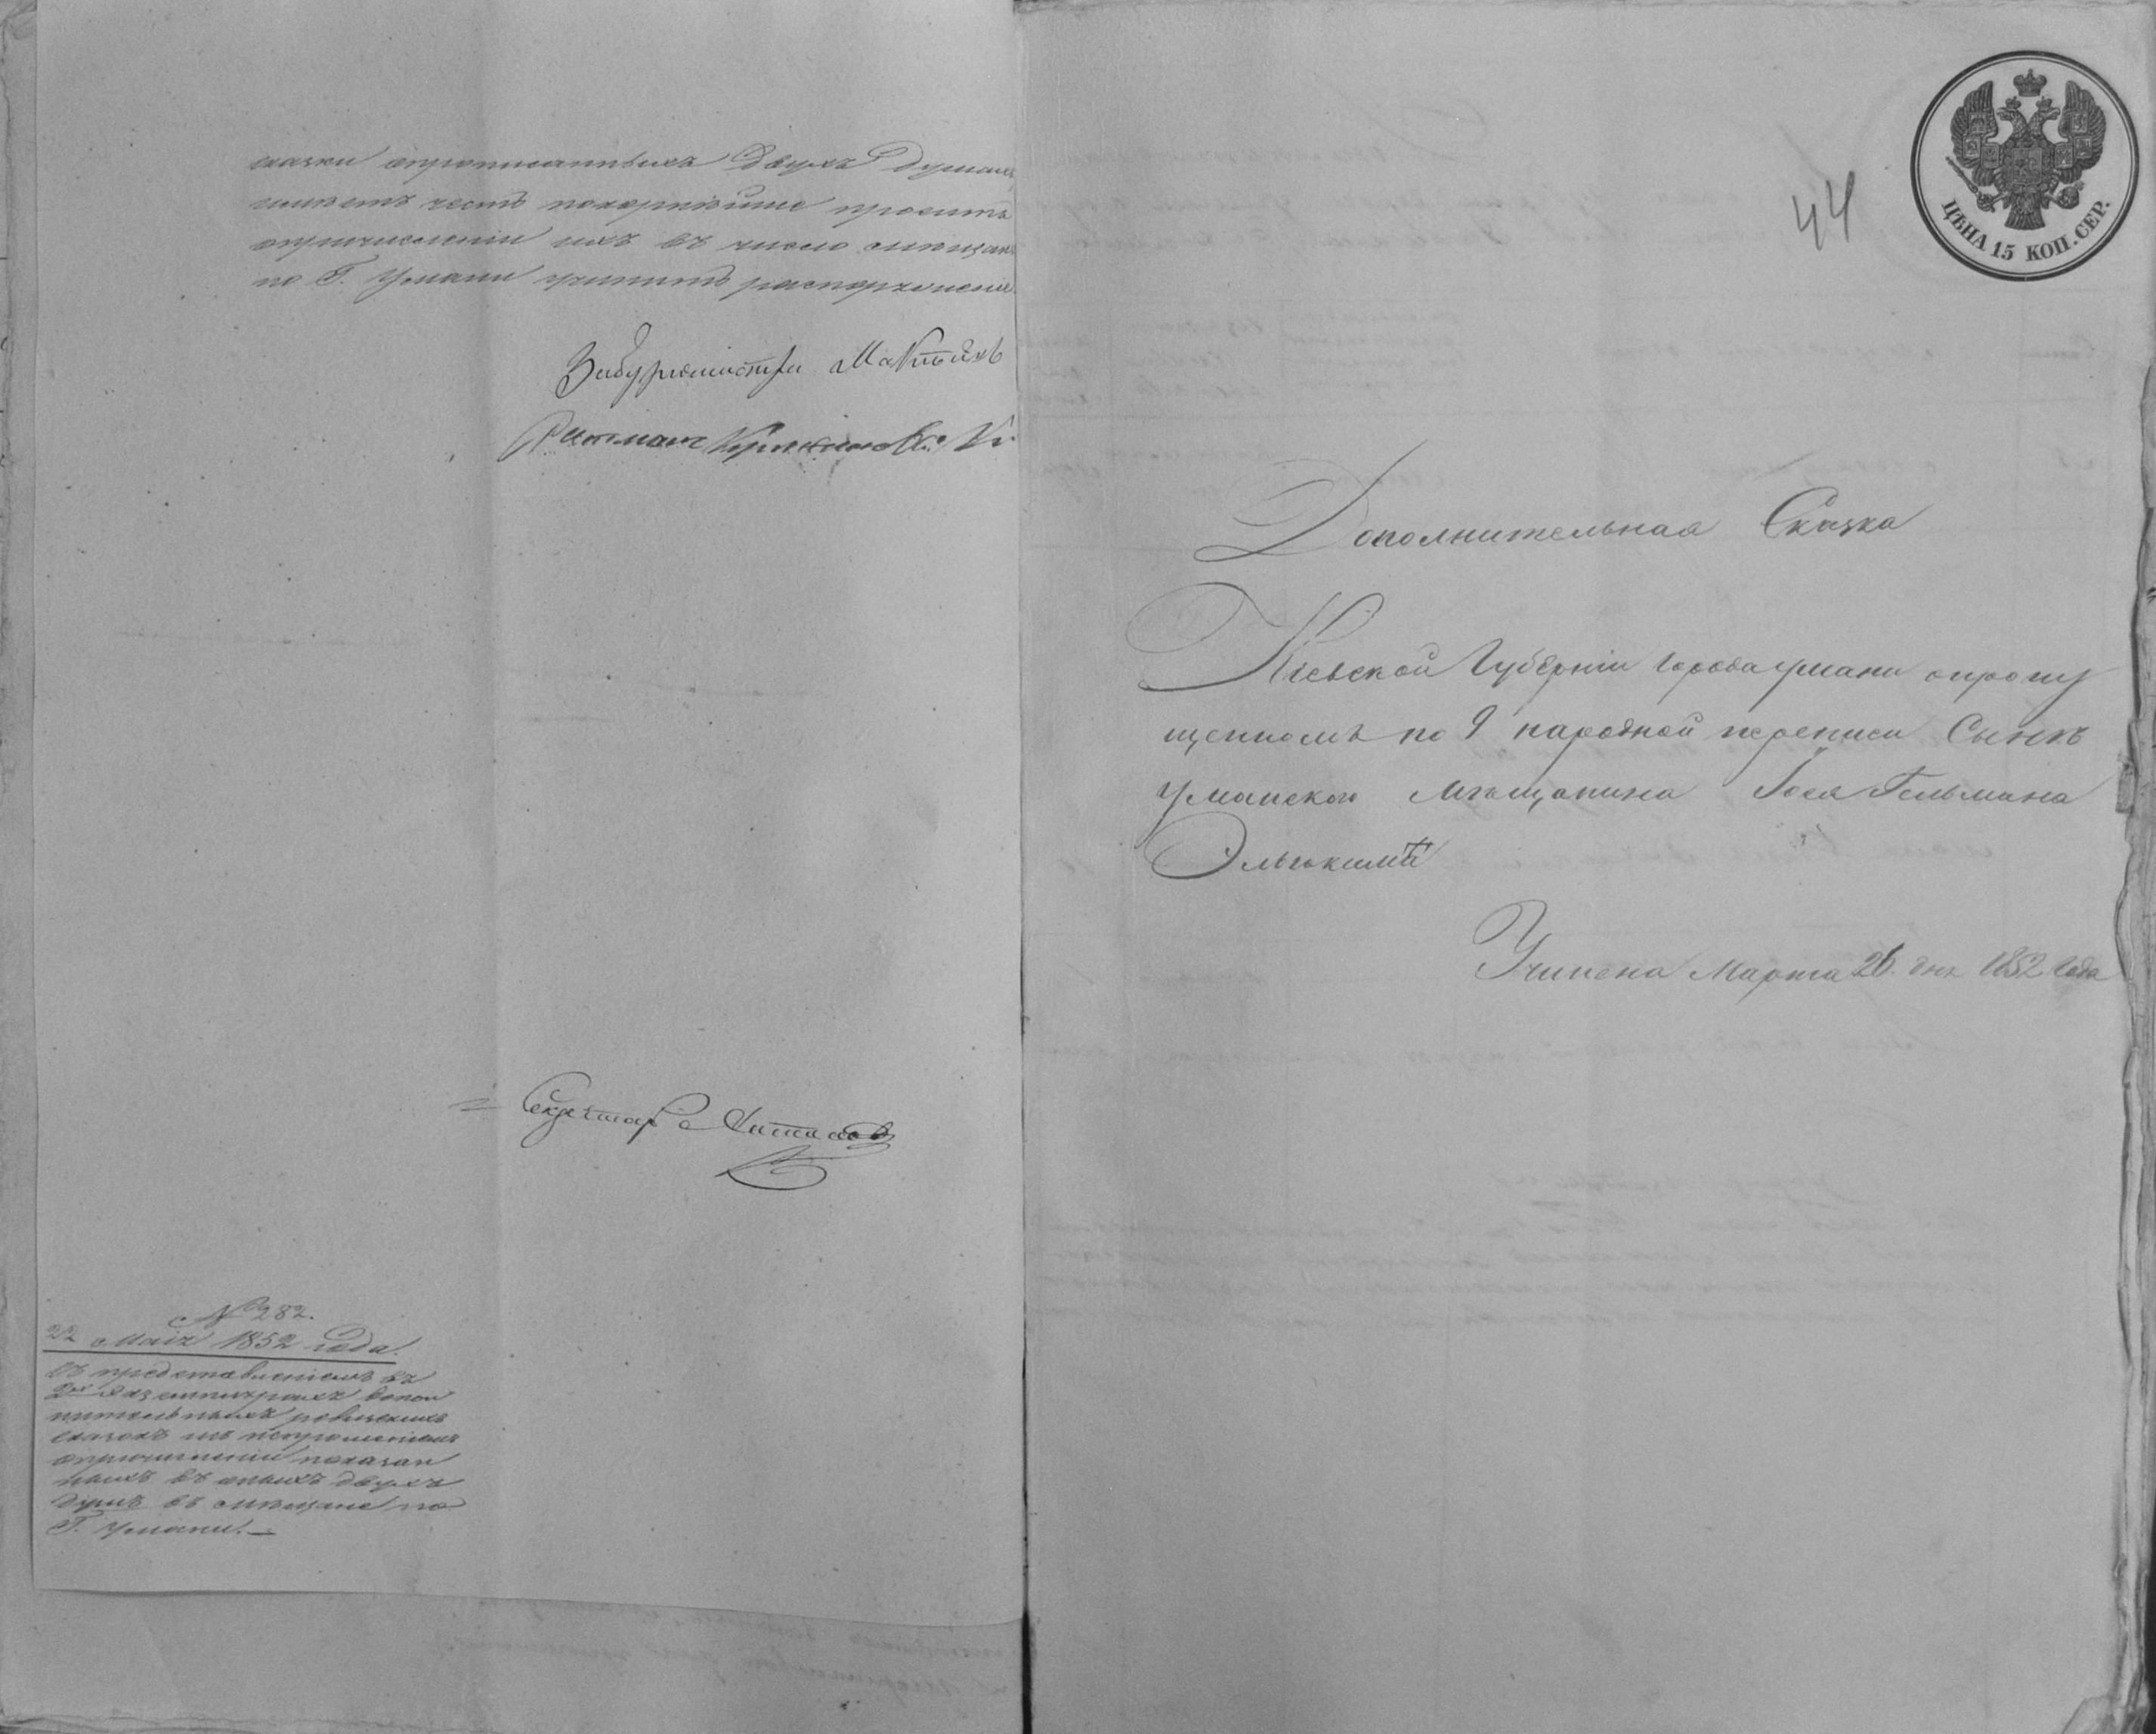 сказки опрописанныхъ двухъ душахъ,
имѣетъ честь покорнѣйше просить
опричисленіи ихъ въ число мѣщанъ
по Г. Умани учинить распоряженіе.
Забургомистра
Ратман
Секретарь
№ 282.
22 Маія 1852 года.
Съ представленіемъ въ
2хъ экземплярахъ допол
нительныхъ ревизскихъ
сказокъ и испрошеніемъ
опричисленіи показан
ныхъ въ оныхъ двухъ
душъ въ мѣщане по
Г. Умани.—
44
ЦѢНА 15 КОП. СЕР.
Дополнительная Сказка
Кіевской Губерніи города Умани опропу
щенномъ по 9 народной переписи Сынѣ
Уманскаго Мѣщанина Іося Гельмана
Учинена Марта 26 дня 1852 года